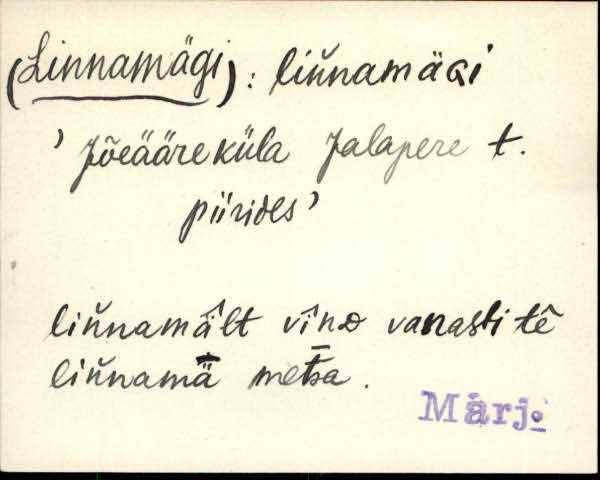 (Linnamägi): liň̆namäGi
' Jõeääreküla Jalapere t.
piirides'
liň̆namä̂lt vînᴅ vanasti tê
liň̆namǟ met̄sa.
Märj.